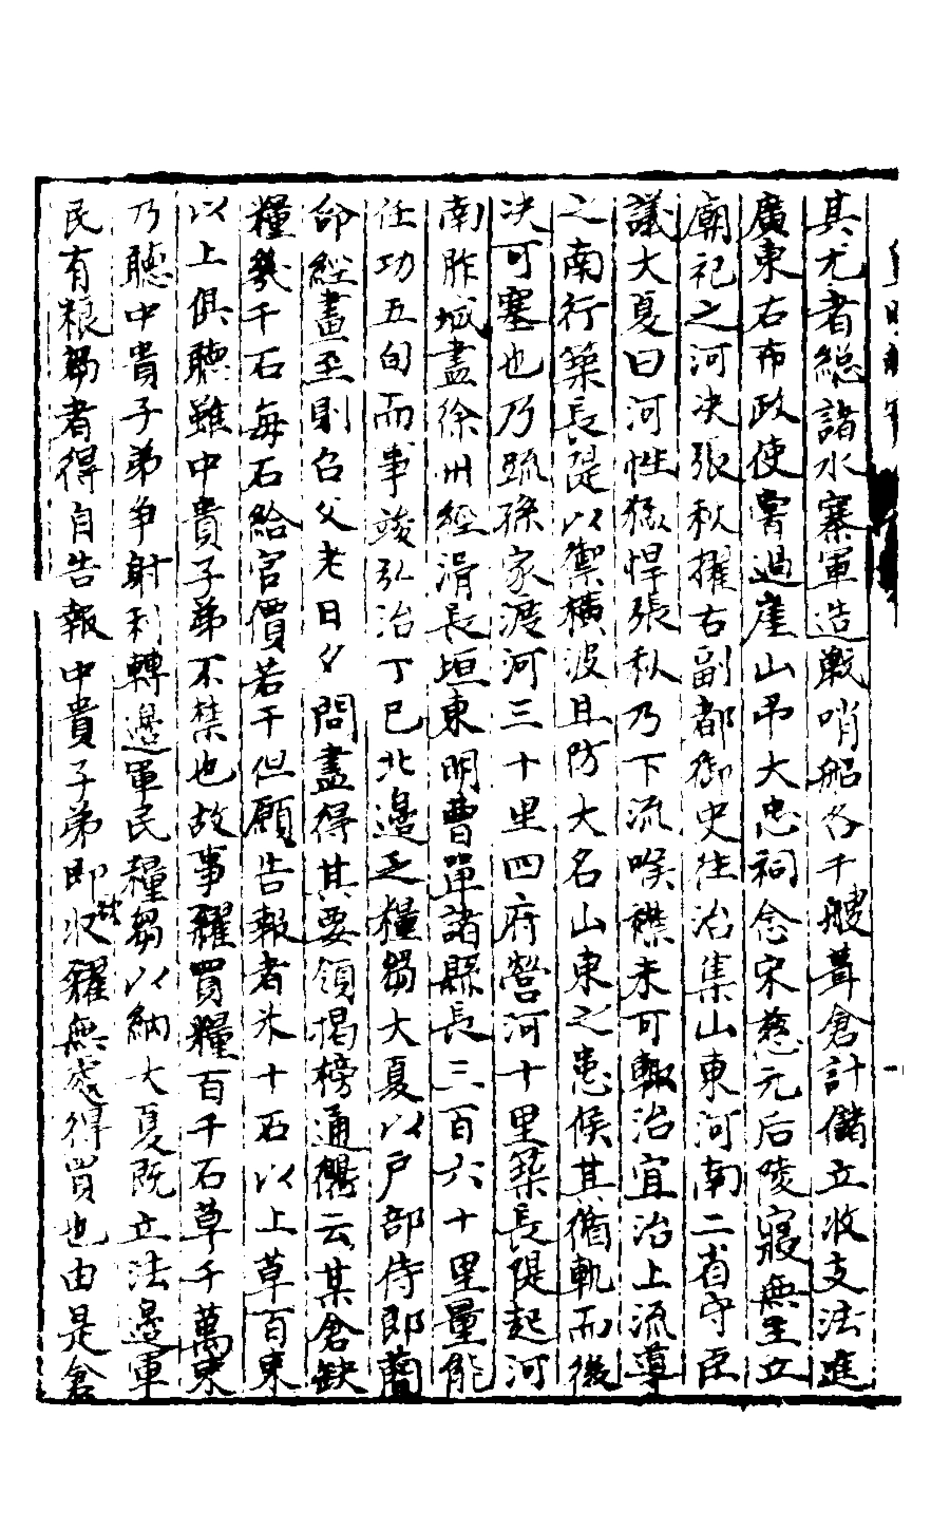 其尤者總諸水寨軍造戰哨船各千艘葺倉計儲立收支法進
廣東右布政使嘗過崖山弔大忠祠念宋慈元后陵寢無主立
廟祀之河决張秋擢右副都御史往治集山東河南二省守臣
議大夏曰河性猛悍張秋乃下流喉襟未可輙治宜治上流導
之南行築長隄以禦橫波且防大名山東之患候其循軌而後
决可塞也乃疏孫家渡河三十里四府營河十里築長隄起河
南胙城盡徐州經滑長垣東明曹單諸縣長三百六十里量能
任功五旬而事竣弘治丁巳北邊乏糧芻大夏以戶部侍郎蕳
命經畫至則召父老日夕問盡得其要領揭榜通衢云某倉缺
糧幾千石每石給官價若干但願告報者米十石以上草百束
以上俱聽雖中貴子弟不禁也故事糴買糧百千石草千萬束
乃聽中貴子弟爭射利轉邊軍民糧芻以納大夏既立法邊軍
民有粮芻者得自告報中貴子弟即收糴無處得買也由是倉